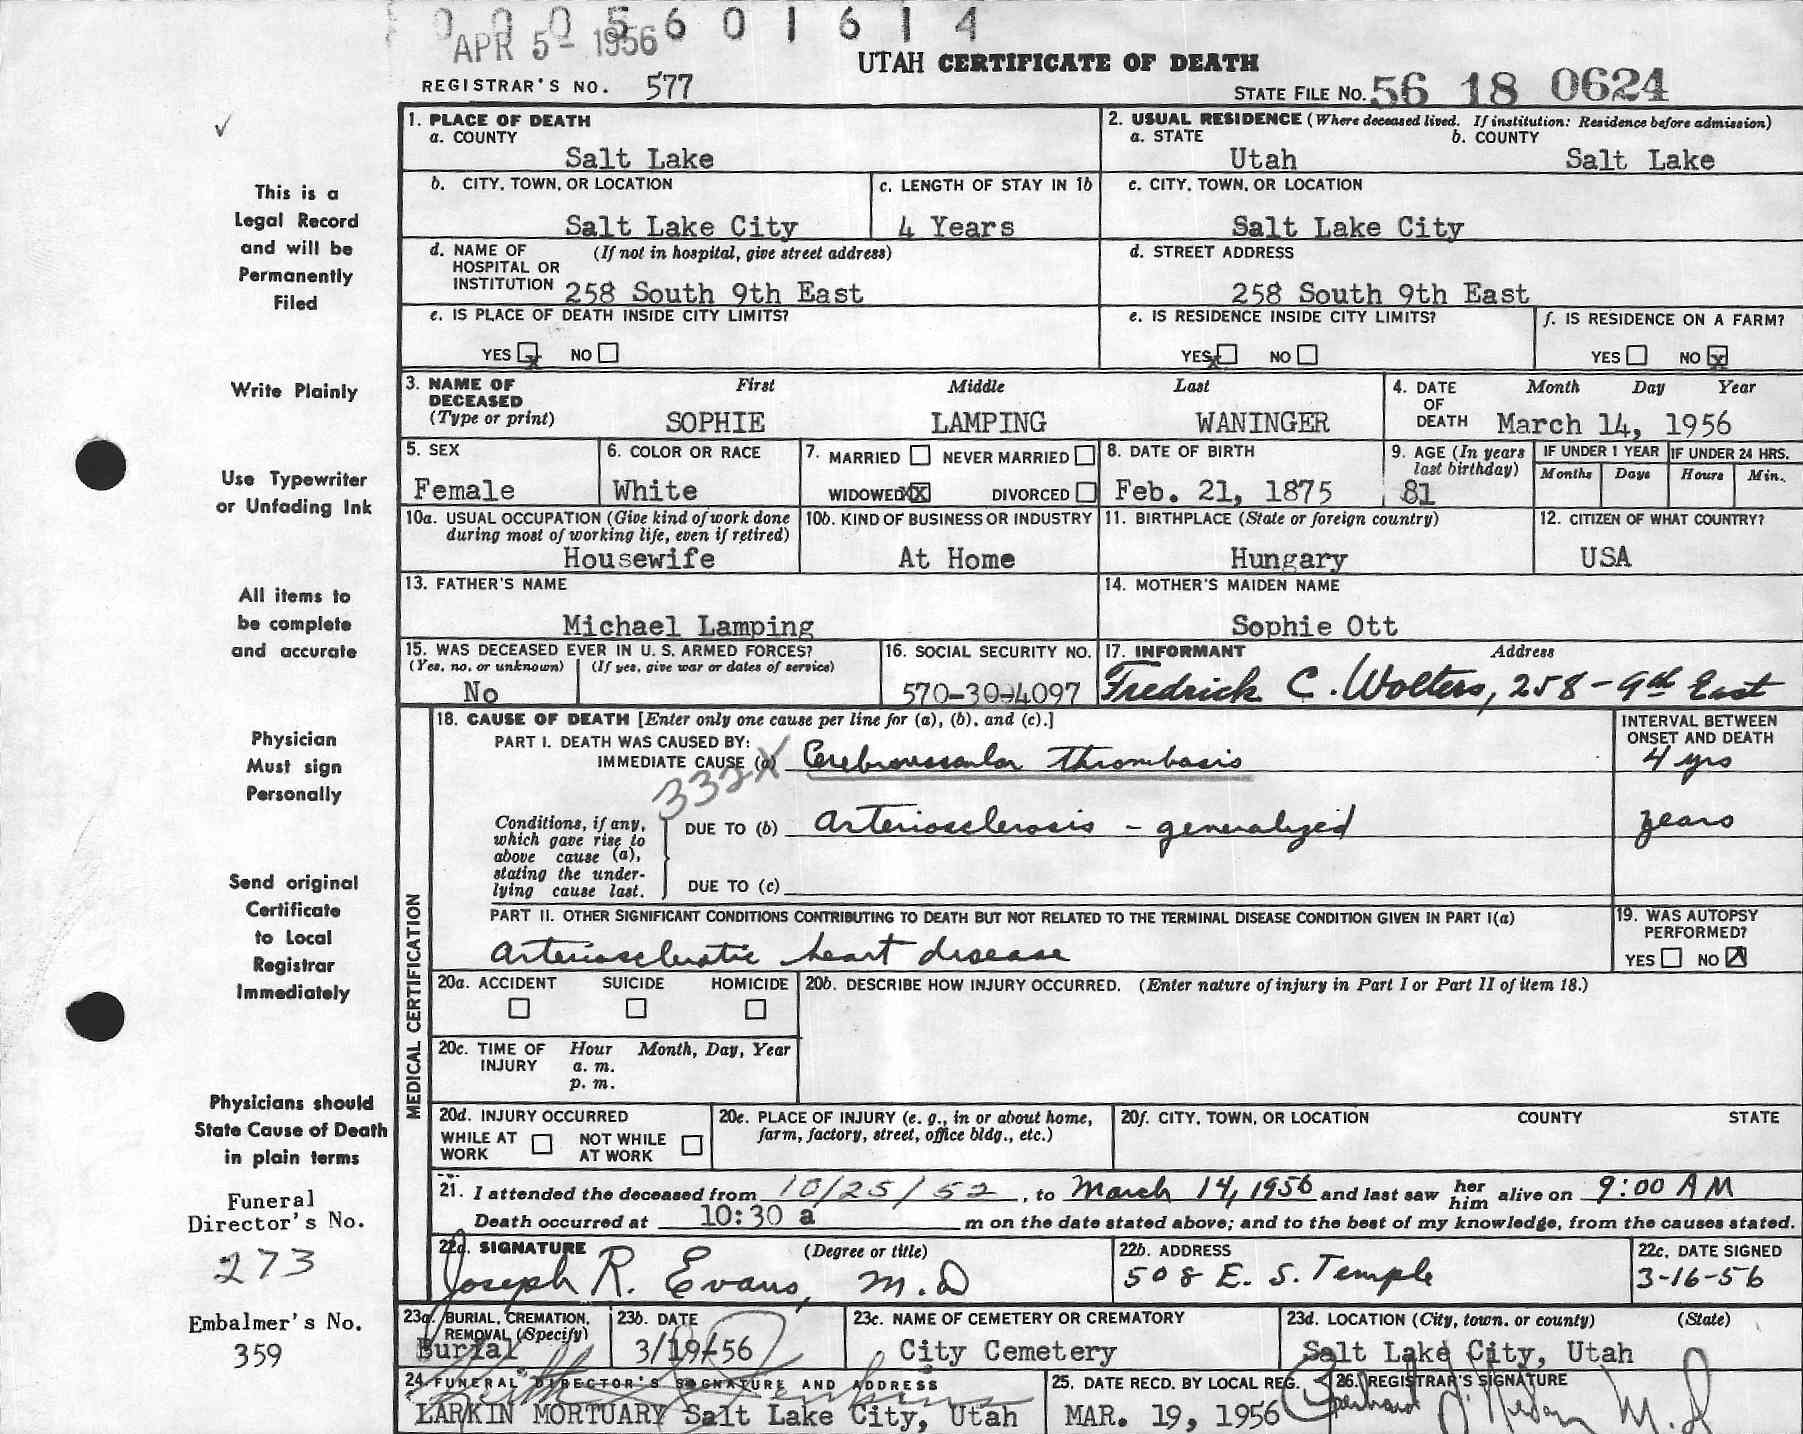 0 0 0 5 6 0 1 6 1 4
APR 5 - 1956
UTAH CERTIFICATE OF DEATH
REGISTRAR'S NO. 577
STATE FILE NO. 56 18 0624
1. PLACE OF DEATH
a. COUNTY
Salt Lake
2. USUAL RESIDENCE (Where deceased lived. If institution: Residence before admission)
a. STATE b. COUNTY
Utah Salt Lake
b. CITY, TOWN, OR LOCATION
Salt Lake City
c. LENGTH OF STAY IN 1b
4 Years
c. CITY, TOWN, OR LOCATION
Salt Lake City
d. NAME OF (If not in hospital, give street address)
HOSPITAL OR
INSTITUTION 258 South 9th East
d. STREET ADDRESS
258 South 9th East
e. IS PLACE OF DEATH INSIDE CITY LIMITS?
YES x NO
e. IS RESIDENCE INSIDE CITY LIMITS?
YES x NO
f. IS RESIDENCE ON A FARM?
YES NO x
3. NAME OF DECEASED (Type or print)
First Middle Last
SOPHIE LAMPING WANINGER
4. DATE OF DEATH
Month Day Year
March 14, 1956
5. SEX
Female
6. COLOR OR RACE
White
7. MARRIED NEVER MARRIED
WIDOWED XX DIVORCED
8. DATE OF BIRTH
Feb. 21, 1875
9. AGE (In years last birthday)
81
IF UNDER 1 YEAR
Months Days
IF UNDER 24 HRS.
Hours Min.
10a. USUAL OCCUPATION (Give kind of work done
during most of working life, even if retired)
Housewife
10b. KIND OF BUSINESS OR INDUSTRY
At Home
11. BIRTHPLACE (State or foreign country)
Hungary
12. CITIZEN OF WHAT COUNTRY?
USA
13. FATHER'S NAME
Michael Lamping
14. MOTHER'S MAIDEN NAME
Sophie Ott
15. WAS DECEASED EVER IN U. S. ARMED FORCES?
(Yes, no, or unknown) (If yes, give war or dates of service)
No
16. SOCIAL SECURITY NO.
570-30-4097
17. INFORMANT Address
Fredrick C. Wolters, 258 - 9th East
MEDICAL CERTIFICATION
18. CAUSE OF DEATH [Enter only one cause per line for (a), (b), and (c).]
PART I. DEATH WAS CAUSED BY:
IMMEDIATE CAUSE (a) Cerebrovascular Thrombosis
332X
INTERVAL BETWEEN
ONSET AND DEATH
4 yrs
Conditions, if any,
which gave rise to
above cause (a),
stating the under-
lying cause last.
DUE TO (b) Arteriosclerosis - generalized
years
DUE TO (c)
PART II. OTHER SIGNIFICANT CONDITIONS CONTRIBUTING TO DEATH BUT NOT RELATED TO THE TERMINAL DISEASE CONDITION GIVEN IN PART I(a)
Arteriosclerotic heart disease
19. WAS AUTOPSY
PERFORMED?
YES NO X
20a. ACCIDENT SUICIDE HOMICIDE
20b. DESCRIBE HOW INJURY OCCURRED. (Enter nature of injury in Part I or Part II of item 18.)
20c. TIME OF INJURY
Hour Month, Day, Year
a. m.
p. m.
20d. INJURY OCCURRED
WHILE AT WORK NOT WHILE AT WORK
20e. PLACE OF INJURY (e. g., in or about home,
farm, factory, street, office bldg., etc.)
20f. CITY, TOWN, OR LOCATION COUNTY STATE
21. I attended the deceased from 10/25/52, to March 14, 1956 and last saw her him alive on 9:00 AM
Death occurred at 10:30 a m on the date stated above; and to the best of my knowledge, from the causes stated.
22a. SIGNATURE (Degree or title)
Joseph R. Evans, M.D
22b. ADDRESS
508 E. S. Temple
22c. DATE SIGNED
3-16-56
23a. BURIAL, CREMATION,
REMOVAL (Specify)
Burial
23b. DATE
3/19/56
23c. NAME OF CEMETERY OR CREMATORY
City Cemetery
23d. LOCATION (City, town, or county) (State)
Salt Lake City, Utah
24. FUNERAL DIRECTOR'S SIGNATURE AND ADDRESS
LARKIN MORTUARY Salt Lake City, Utah
25. DATE RECD. BY LOCAL REG.
MAR. 19, 1956
26. REGISTRAR'S SIGNATURE
This is a
Legal Record
and will be
Permanently
Filed
Write Plainly
Use Typewriter
or Unfading Ink
All items to
be complete
and accurate
Physician
Must sign
Personally
Send original
Certificate
to Local
Registrar
Immediately
Physicians should
State Cause of Death
in plain terms
Funeral
Director's No.
273
Embalmer's No.
359